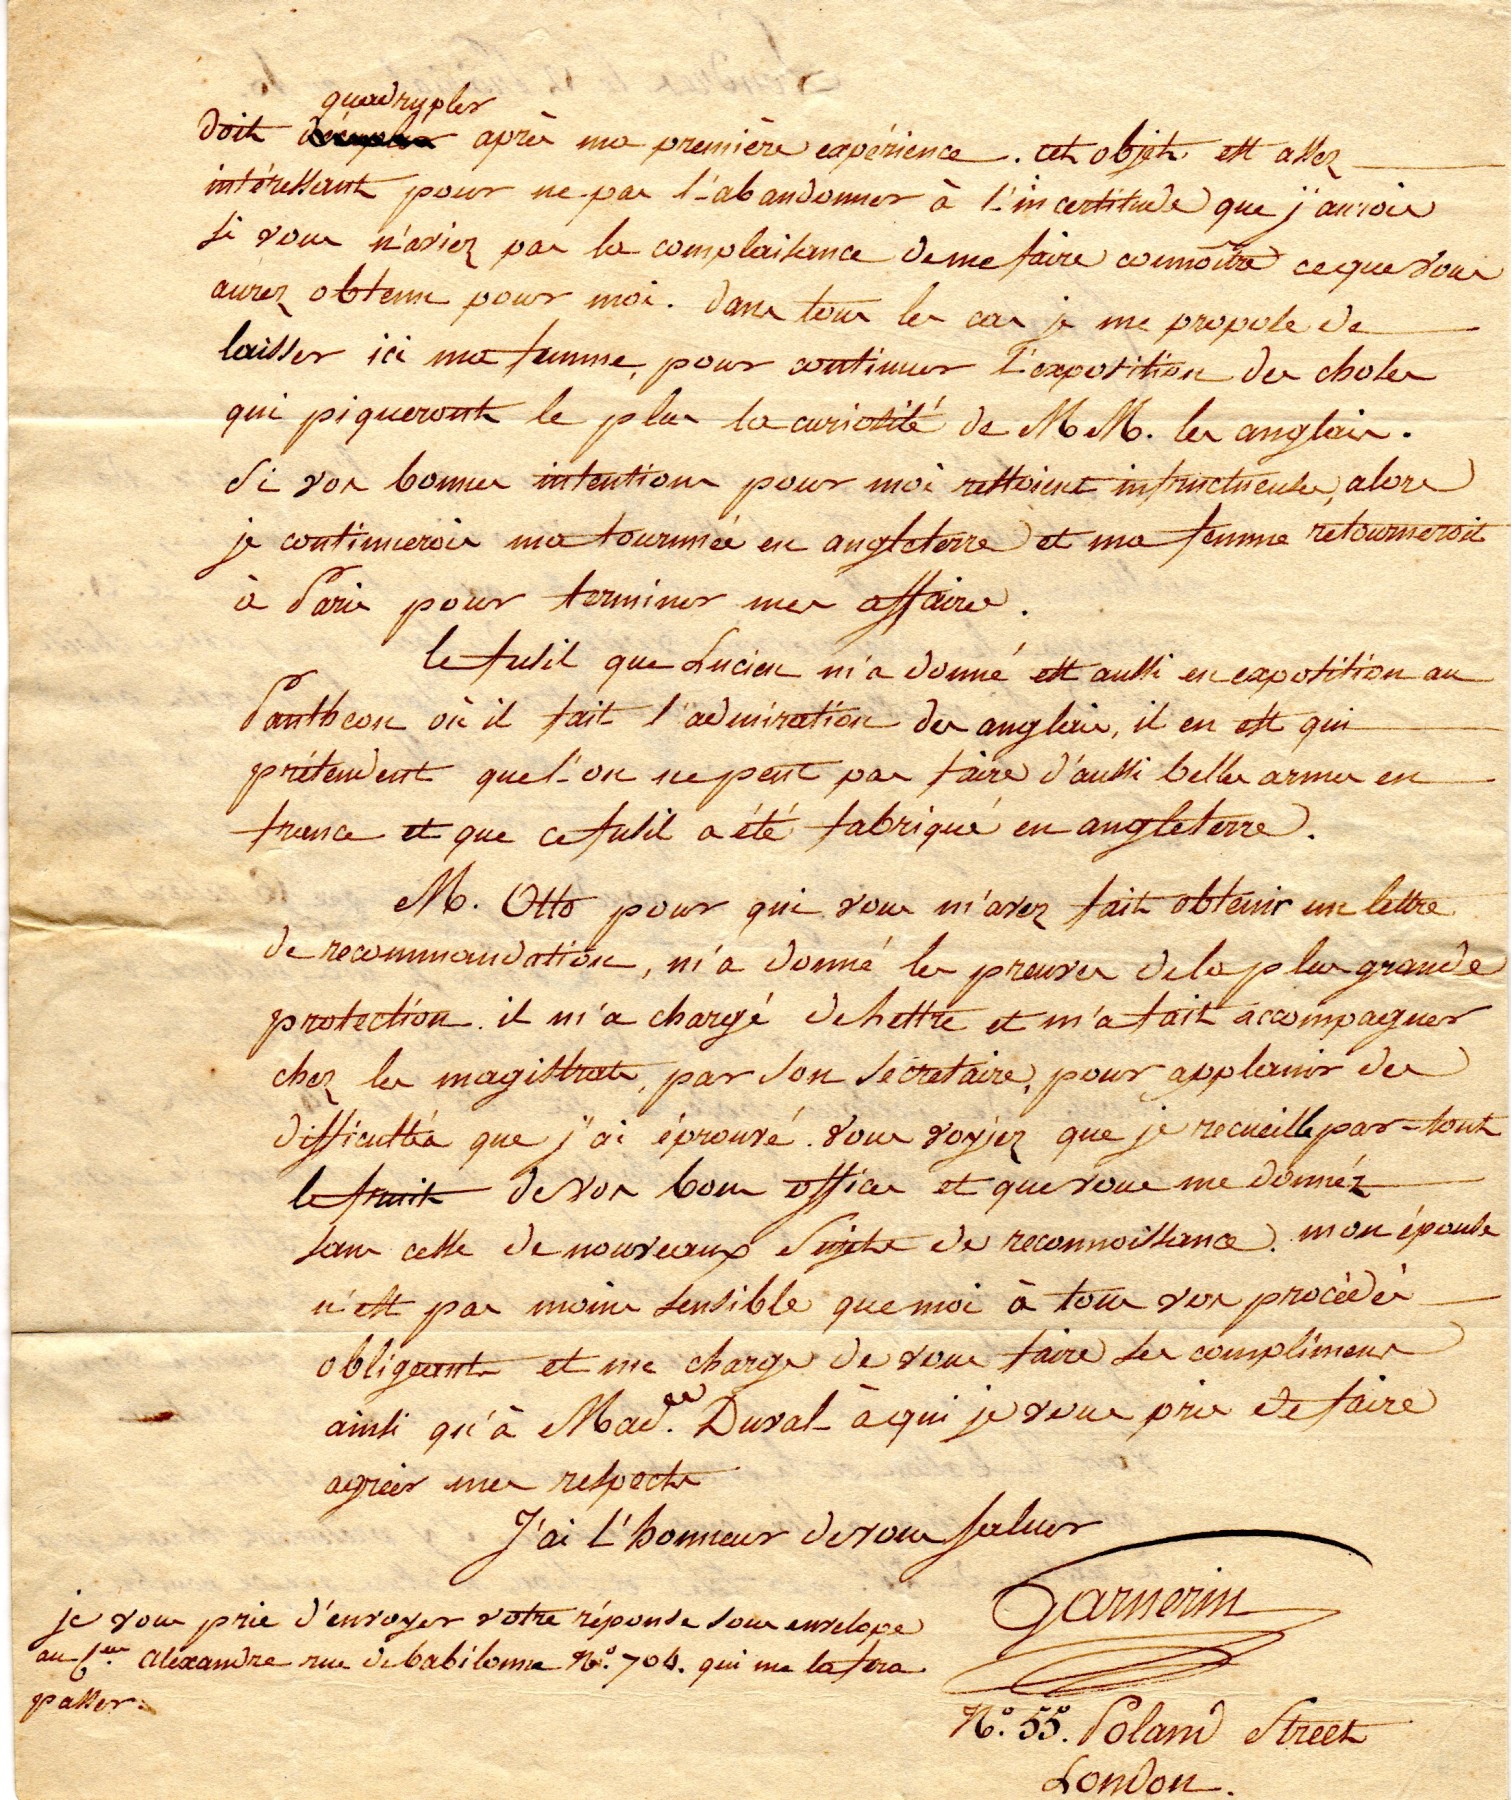 quadrupler
doit décupler après ma première expérience. cet objet est assez
intéressant pour ne pas l'abandonner à l'incertitude que j'aurois
si vous n'aviez pas la complaisance de me faire connoitre ce que vous
aurez obtenu pour moi. dans tous les cas je me propose de
laisser ici ma femme, pour continuer l'exposition des choses
qui piqueront le plus la curiosité de MM. les anglais.
Si vos bonnes intentions pour moi restoient infructueuses, alors
je continuerois ma tournnée en angleterre et ma femme retourneroit
à Paris pour terminer mes affaires.
le fusil que Lucien m'a donné est aussi en exposition au
Panthéon où il fait l'admiration des anglais, il en est qui
prétendent que l'on ne peut pas faire d'aussi belles armes en
france et que ce fusil a été fabriqué en angleterre.
M. Otto pour qui vous m'avez fait obtenir une lettre
de recommandation, m'a donné les preuves de la plus grande
protection. il m'a chargé de lettre et m'a fait accompagner
chez les magistrats, par son sécretaire, pour applanir des
difficultés que j'ai éprouvé. vous voyiez que je recueille par-tout
le fruit de vos bons offices et que vous me donnéz
sans cesse de nouveaux Sujets de reconnoissance. mon épouse
n'est pas moins sensible que moi à tous vos procédés
obligeants et me charge de vous faire ses complimens
ainsi qu'à Mad.de Duval à qui je vous prie de faire
agréer mes respects
J'ai l'honneur de vous saluer
Garnerin
je vous prie d'envoyer votre réponse sous envelope
au C.en Alexandre rue de babilonne N.º 704. qui me la fera
passer.
N.º 55. Poland Street
London.